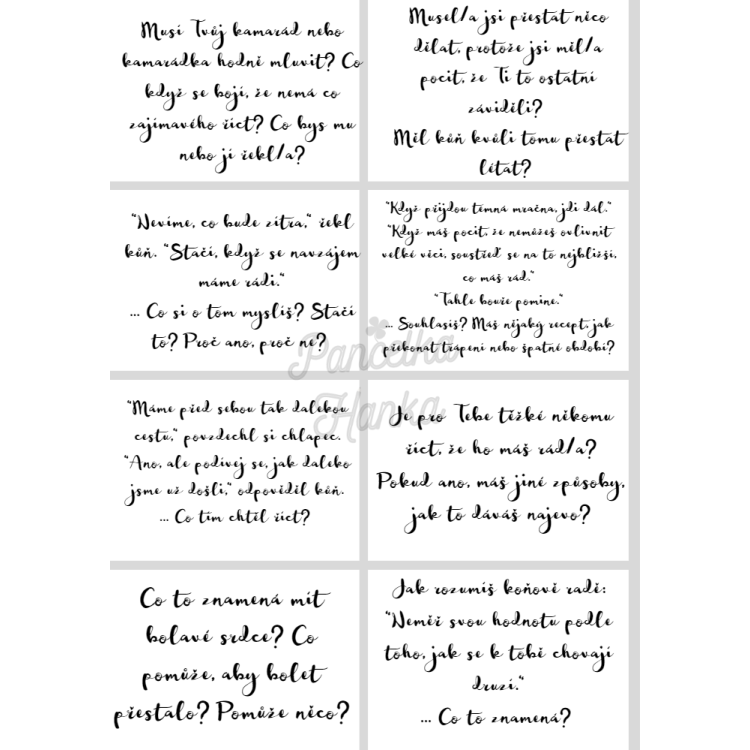 Musí Tvůj kamarád nebo
kamarádka hodně mluvit? Co
když se bojí, že nemá co
zajímavého říct? Co bys mu
nebo jí řekl/a?
Musel/a jsi přestat něco
dělat, protože jsi měl/a
pocit, že Ti to ostatní
záviděli?
Měl kůň kvůli tomu přestat
létat?
"Nevíme, co bude zítra," řekl
kůň. "Stačí, když se navzájem
máme rádi."
... Co si o tom myslíš? Stačí
to? Proč ano, proč ne?
"Když přijdou temná mračna, jdi dál."
"Když máš pocit, že nemůžeš ovlivnit
velké věci, soustřeď se na to nejbližší,
co máš rád."
"Tahle bouře pomine."
... Souhlasíš? Máš nějaký recept, jak
překonat trápení nebo špatné období?
Pančelka
Hanka
"Máme před sebou tak dalekou
cestu," povzdechl si chlapec.
"Ano, ale podívej se, jak daleko
jsme už došli," odpověděl kůň.
... Co tím chtěl říct?
Je pro Tebe těžké někomu
říct, že ho máš rád/a?
Pokud ano, máš jiné způsoby,
jak to dáváš najevo?
Co to znamená mít
bolavé srdce? Co
pomůže, aby bolet
přestalo? Pomůže něco?
Jak rozumíš koňově radě:
"Neměř svou hodnotu podle
toho, jak se k tobě chovají
druzí."
... Co to znamená?